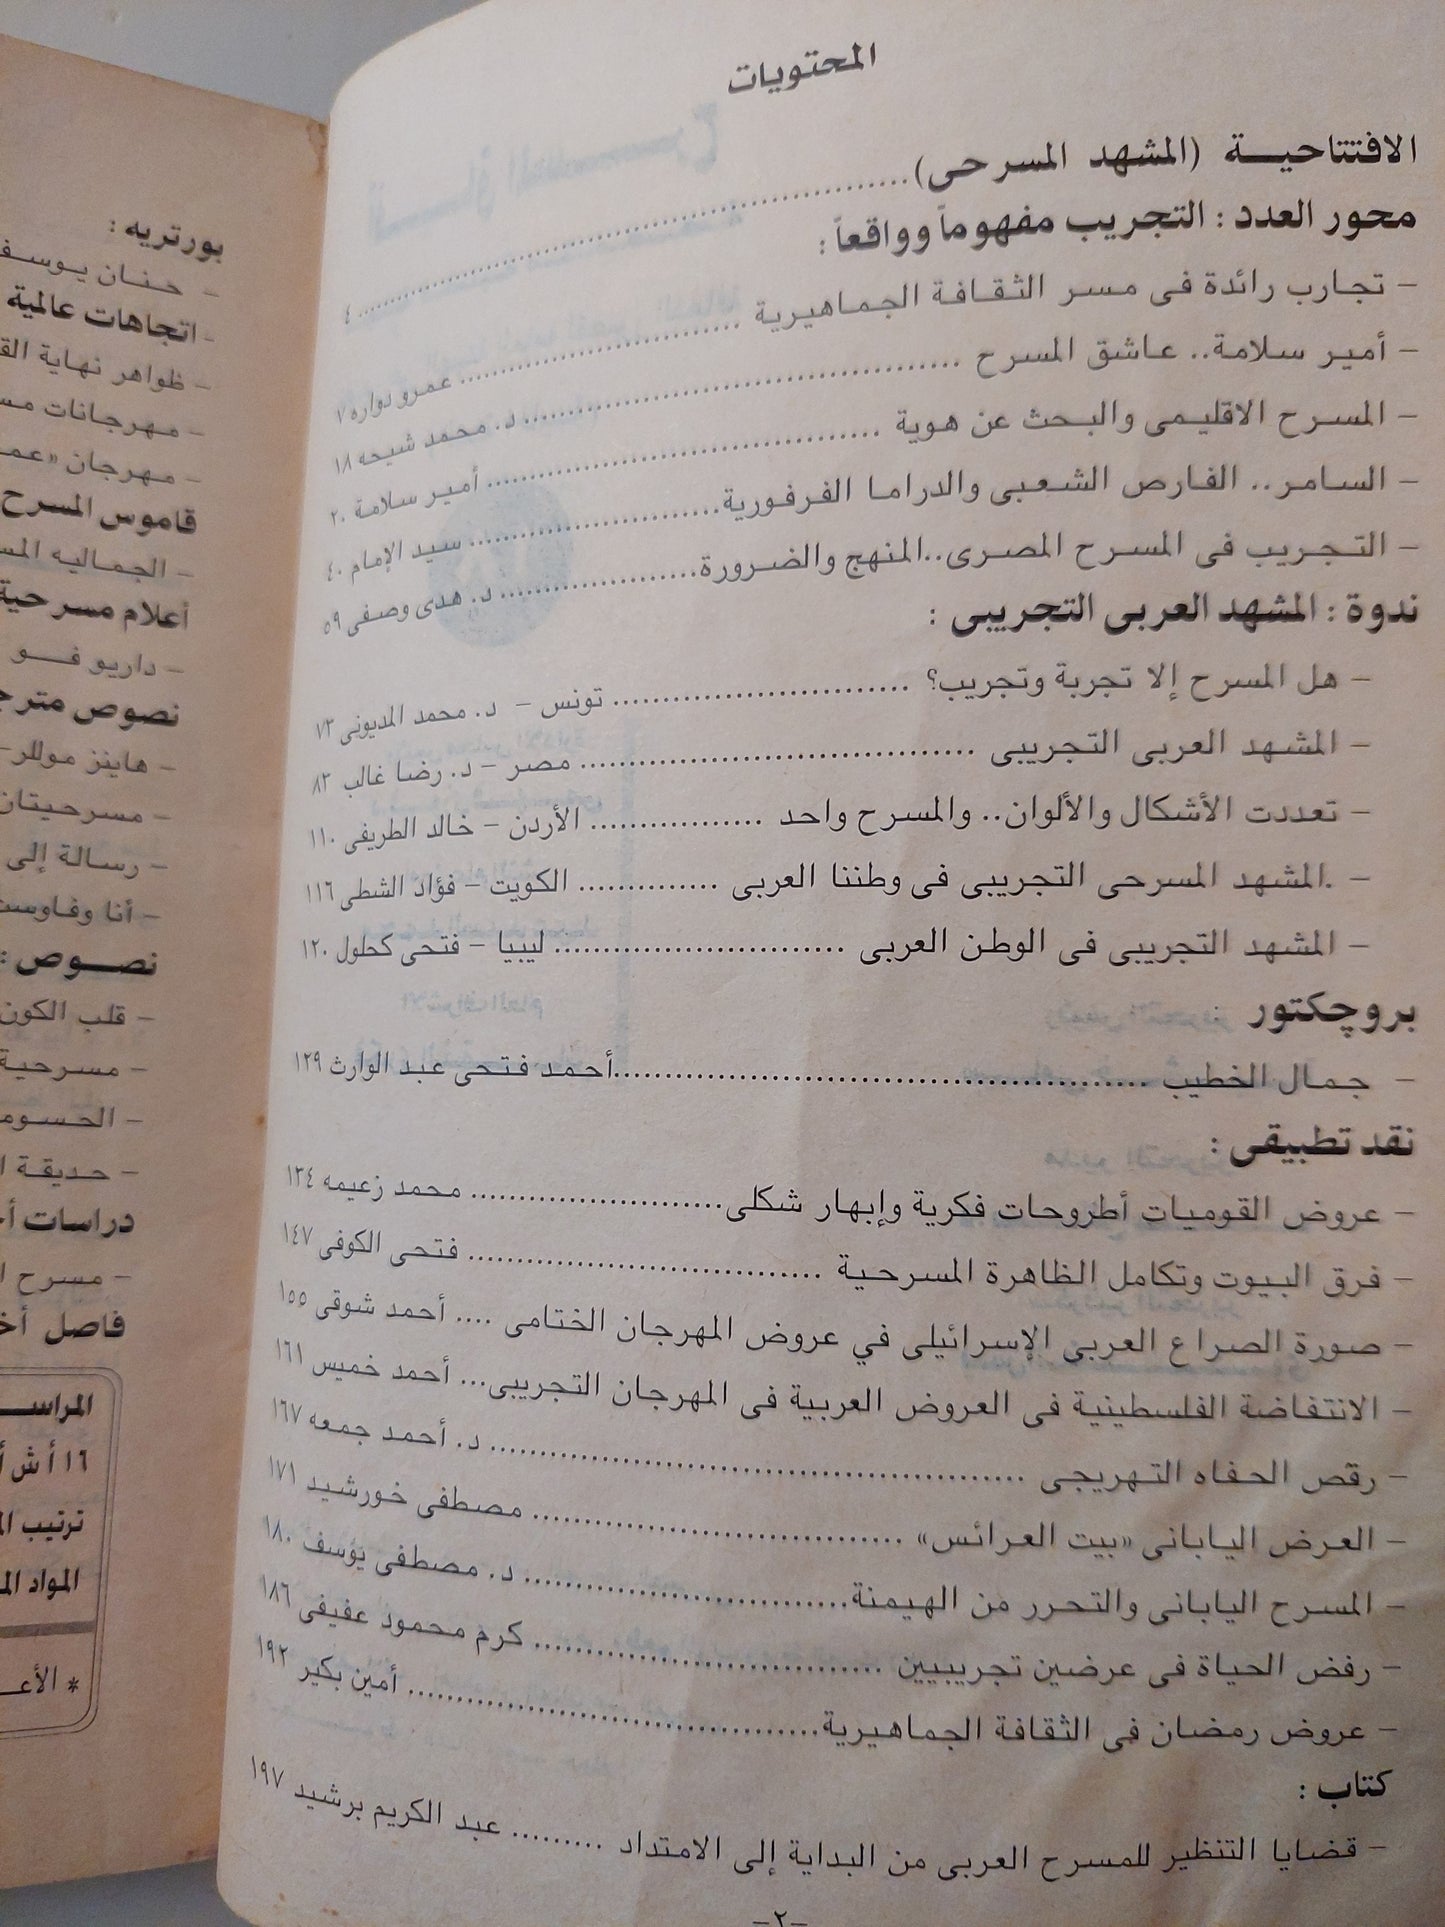 المحتويات
الافتتاحيـــة (المشهد المسرحى)........................................ ٤
محور العدد : التجريب مفهوماً وواقعاً :
– تجارب رائدة فى مسر الثقافة الجماهيرية ........................ عمرو دواره ٧
– أمير سلامة.. عاشق المسرح ........................ د. محمد شيحه ١٨
– المسرح الاقليمى والبحث عن هوية ........................ أمير سلامة ٢٠
– السامر.. الفارص الشعبى والدراما الفرفورية........................ سيد الإمام ٤٠
– التجريب فى المسرح المصرى..المنهج والضرورة.................... د. هدى وصفى ٥٩
ندوة : المشهد العربى التجريبى :
– هل المسرح إلا تجربة وتجريب؟ ........................ تونس – د. محمد المديونى ٧٣
– المشهد العربى التجريبى ........................ مصر – د. رضا غالب ٨٣
– تعددت الأشكال والألوان.. والمسرح واحد ................. الأردن – خالد الطريفى ١١٠
– .المشهد المسرحى التجريبى فى وطننا العربى .............. الكويت – فؤاد الشطى ١١٦
– المشهد التجريبى فى الوطن العربى ........................ ليبيا – فتحى كحلول ١٢٠
بروچكتور :
– جمال الخطيب ........................أحمد فتحى عبد الوارث ١٢٩
نقد تطبيقى :
– عروض القوميات أطروحات فكرية وإبهار شكلى........................ محمد زعيمه ١٣٤
– فرق البيوت وتكامل الظاهرة المسرحية ........................ فتحى الكوفى ١٤٧
– صورة الصراع العربى الإسرائيلى في عروض المهرجان الختامى .... أحمد شوقى ١٥٥
– الانتفاضة الفلسطينية فى العروض العربية فى المهرجان التجريبى... أحمد خميس ١٦١
– رقص الحفاه التهريجى ........................ د. أحمد جمعه ١٦٧
– العرض اليابانى «بيت العرائس» ........................ مصطفى خورشيد ١٧١
– المسرح اليابانى والتحرر من الهيمنة........................ د. مصطفى يوسف ١٨٠
– رفض الحياة فى عرضين تجريبيين ........................ كرم محمود عفيفى ١٨٦
– عروض رمضان فى الثقافة الجماهيرية........................ أمين بكير ١٩٢
كتاب :
– قضايا التنظير للمسرح العربى من البداية إلى الامتداد ......... عبد الكريم برشيد ١٩٧
–٢–
بورتريه :
– حنان يوسف
– اتجاهات عالمية
– ظواهر نهاية
– مهرجانات
– مهرجان
قاموس المسرح
– الجماليه
أعلام مسرحية
– داريو فــو
نصوص
– هاينز موللر–
– مسرحيتان
– رسالة إلى
– أنا وفاوست
نصـــوص :
– قلب الكون
– مسرحية
–
– حديقة
دراسات
– مسرح
فاصل
١٦ أ ش
ترتيب
المواد
*